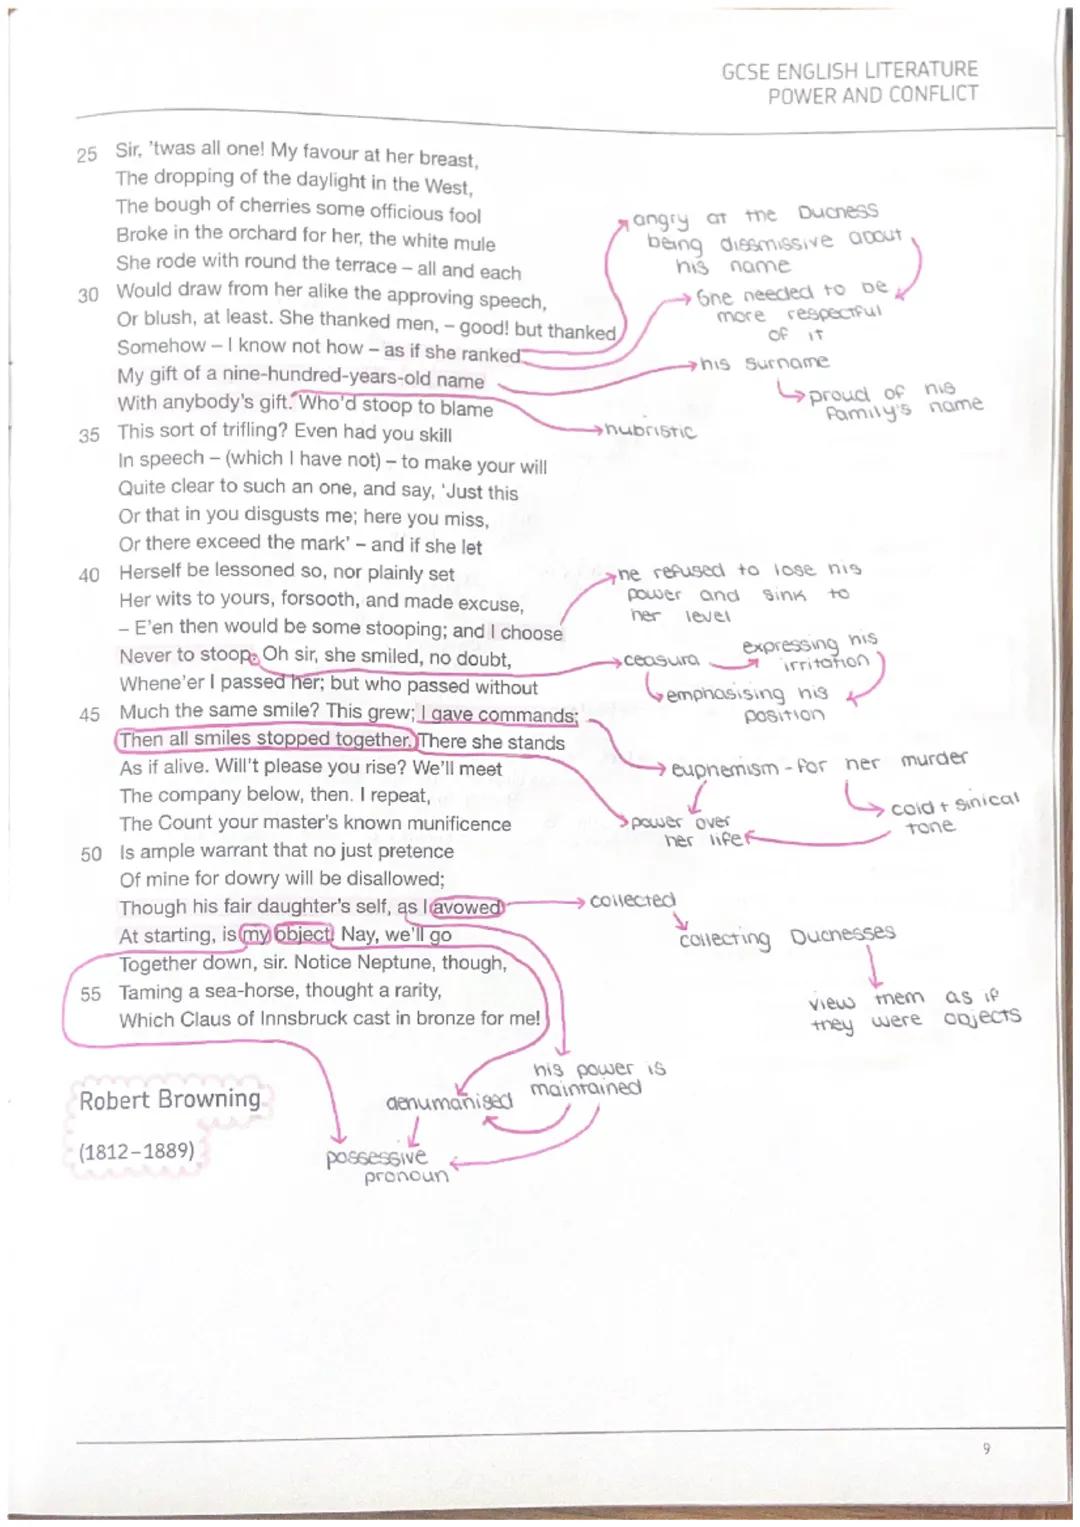 GCSE ENGLISH LITERATURE
POWER AND CONFLICT
25 Sir, 'twas all one! My favour at her breast,
The dropping of the daylight in the West,
The bough of cherries some officious fool
Broke in the orchard for her, the white mule
She rode with round the terrace – all and each
30 Would draw from her alike the approving speech,
Or blush, at least. She thanked men, – good! but thanked
Somehow – I know not how – as if she ranked
My gift of a nine-hundred-years-old name
With anybody's gift. Who'd stoop to blame
35 This sort of trifling? Even had you skill
In speech – (which I have not) – to make your will
Quite clear to such an one, and say, 'Just this
Or that in you disgusts me; here you miss,
Or there exceed the mark' – and if she let
40 Herself be lessoned so, nor plainly set
Her wits to yours, forsooth, and made excuse,
– E'en then would be some stooping; and I choose
Never to stoop. Oh sir, she smiled, no doubt,
Whene'er I passed her; but who passed without
45 Much the same smile? This grew; I gave commands;
Then all smiles stopped together. There she stands
As if alive. Will't please you rise? We'll meet
The company below, then. I repeat,
The Count your master's known munificence
50 Is ample warrant that no just pretence
Of mine for dowry will be disallowed;
Though his fair daughter's self, as I avowed
At starting, is my object. Nay, we'll go
Together down, sir. Notice Neptune, though,
55 Taming a sea-horse, thought a rarity,
Which Claus of Innsbruck cast in bronze for me!
Robert Browning
(1812–1889)
angry at the Duchess
being dissmissive about
his name
She needed to be
more respectful
of it
his surname
proud of his
family's name
hubristic
he refused to lose his
power and sink to
her level
ceasura
expressing his
irritation
emphasising his
position
euphemism - for her murder
cold + sinical
tone
power over
her life
collected
collecting Duchesses
view them as if
they were objects
his power is
maintained
dehumanised
possessive
pronoun
9